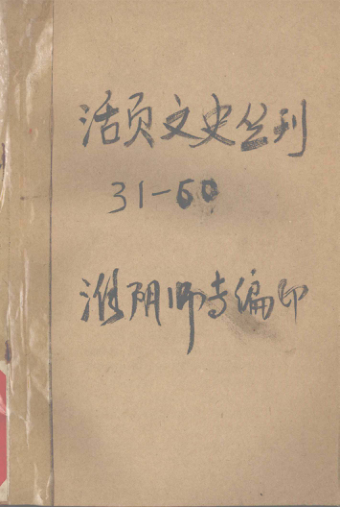 活页文史丛刊
31-60
淮阴师专编印